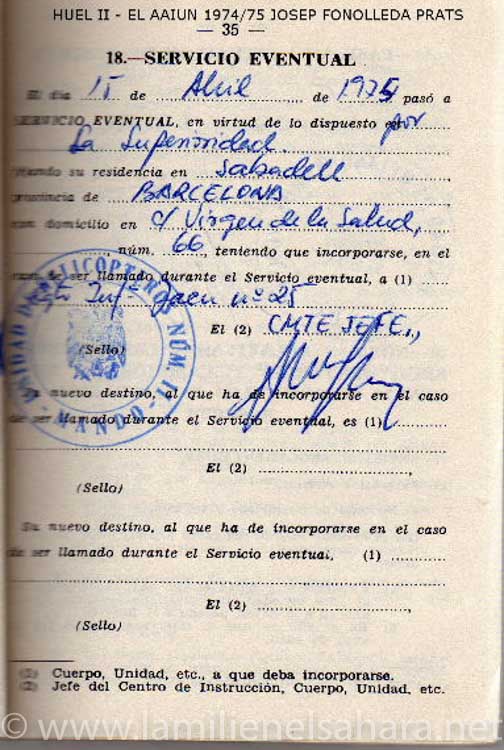 HUEL II - EL AAIUN 1974/75 JOSEP FONOLLEDA PRATS
— 35 —
18.—SERVICIO EVENTUAL
El día 15 de Abril de 1975 pasó a
SERVICIO EVENTUAL, en virtud de lo dispuesto por
La Superioridad.
su residencia en Sabadell
provincia de BARCELONA
domicilio en c/ Virgen de la Salud,
núm. 66, teniendo que incorporarse, en el
de ser llamado durante el Servicio eventual, a (1)
Inf.ª Jaen nº 25
El (2) CMTE JEFE.,
(Sello)
UNIDAD DE HELICOPTEROS NÚM. II - MANDO -
nuevo destino, al que ha de incorporarse en el caso
de ser llamado durante el Servicio eventual, es (1)
El (2)
(Sello)
Su nuevo destino, al que ha de incorporarse en el caso
de ser llamado durante el Servicio eventual, (1)
El (2)
(Sello)
(1) Cuerpo, Unidad, etc., a que deba incorporarse.
(2) Jefe del Centro de Instrucción, Cuerpo, Unidad, etc.
© www.lamilienelsahara.net